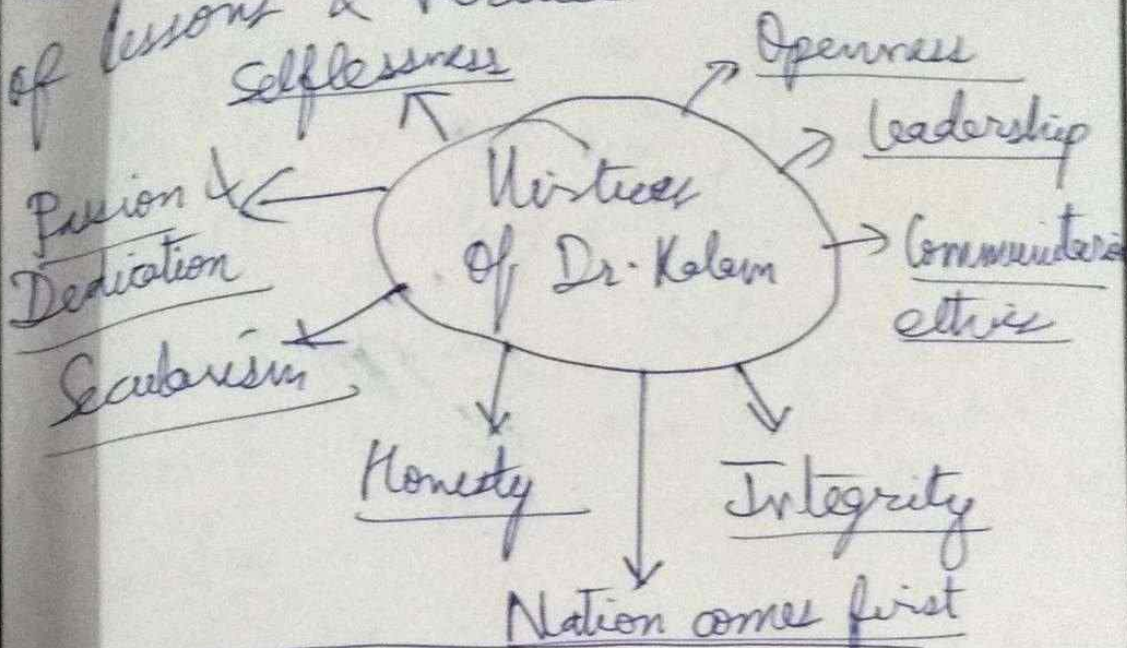 of lessons &
Selflessness
Openness
Leadership
Virtues
Of Dr. Kalam
Passion &
Dedication
Communitaria
ethics
Secularism
Honesty
Integrity
Nation comes first